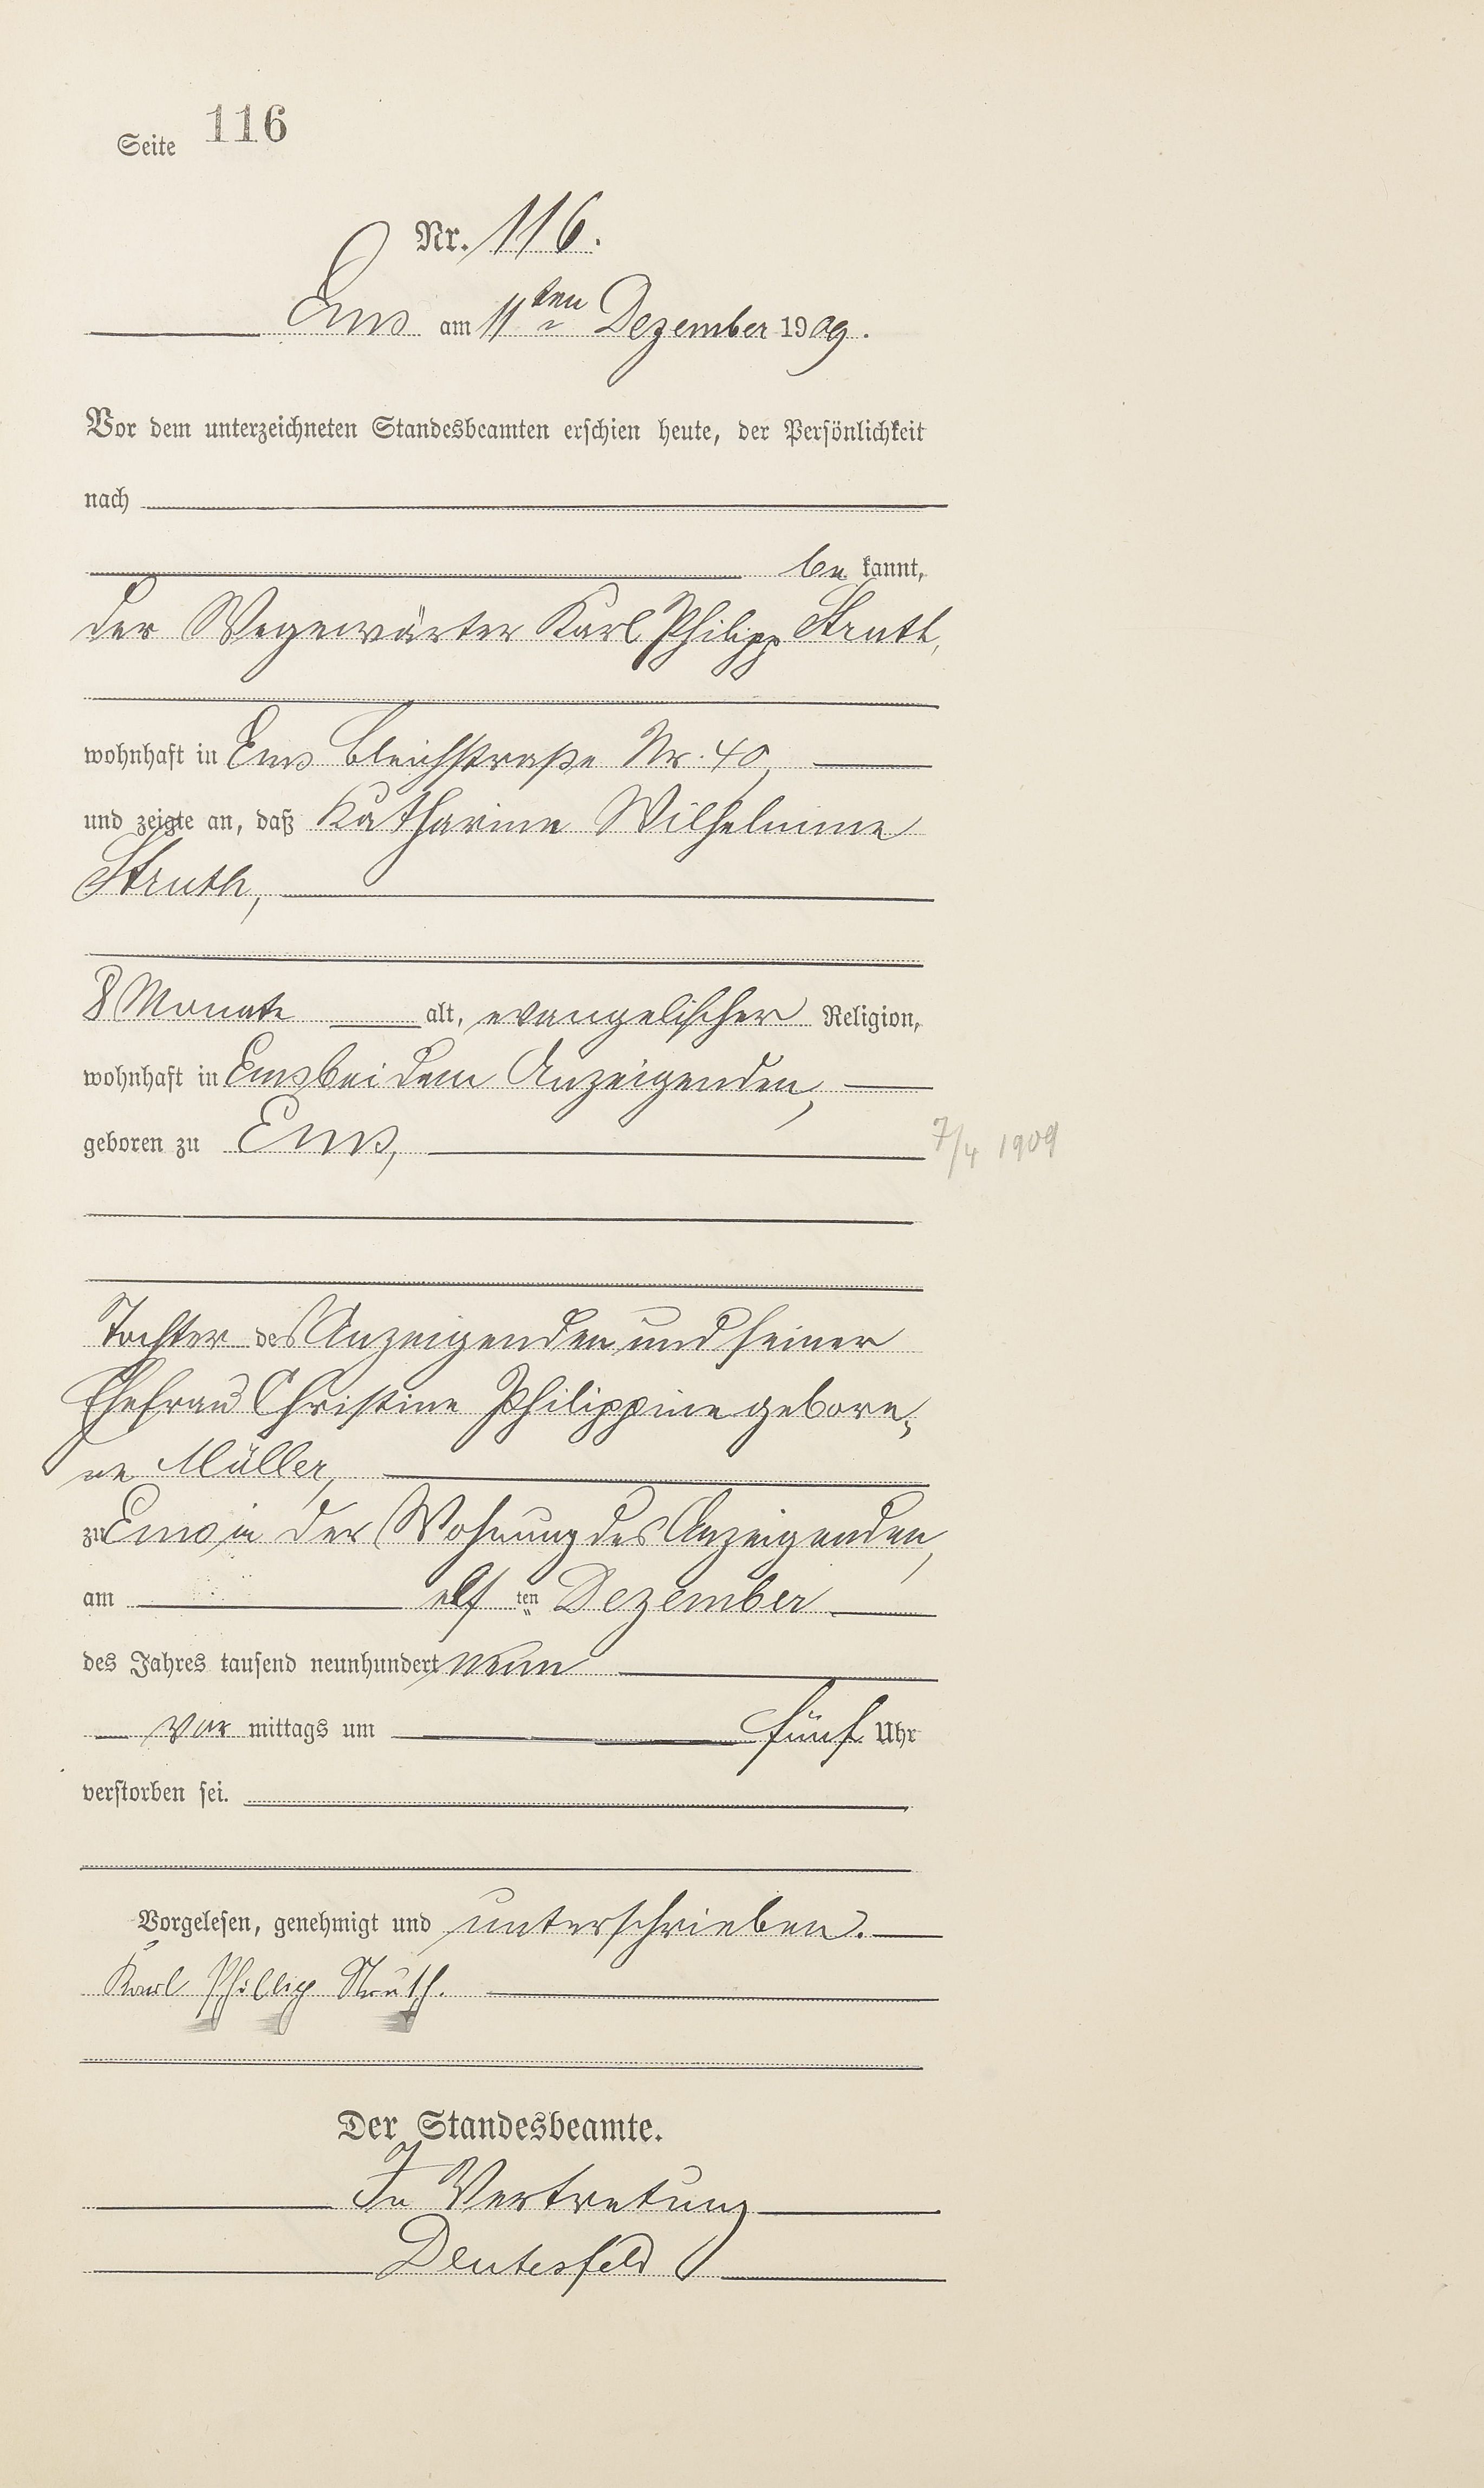 Seite 116
Nr. 116.
Ems am 11ten Dezember 1909.
Vor dem unterzeichneten Standesbeamten erschien heute, der Persönlichkeit
nach
be kannt,
der Wegewärter Karl Philipp Struth,
wohnhaft in Ems Bleichstraße Nr. 40,
und zeigte an, daß Katharine Wilhelmine
Struth,
8 Monate alt, evangelischer Religion,
wohnhaft in Ems bei dem Anzeigenden,
geboren zu Ems, 7/4 1909
Tochter des Anzeigenden und seiner
Ehefrau Christine Philippine gebore-
ne Müller,
zu Ems in der Wohnung des Anzeigenden,
am elf ten Dezember
des Jahres tausend neunhundert neun
vor mittags um fünf Uhr
verstorben sei.
Vorgelesen, genehmigt und unterschrieben.
Karl Phillip Struth.
Der Standesbeamte.
In Vertretung
Deutesfeld